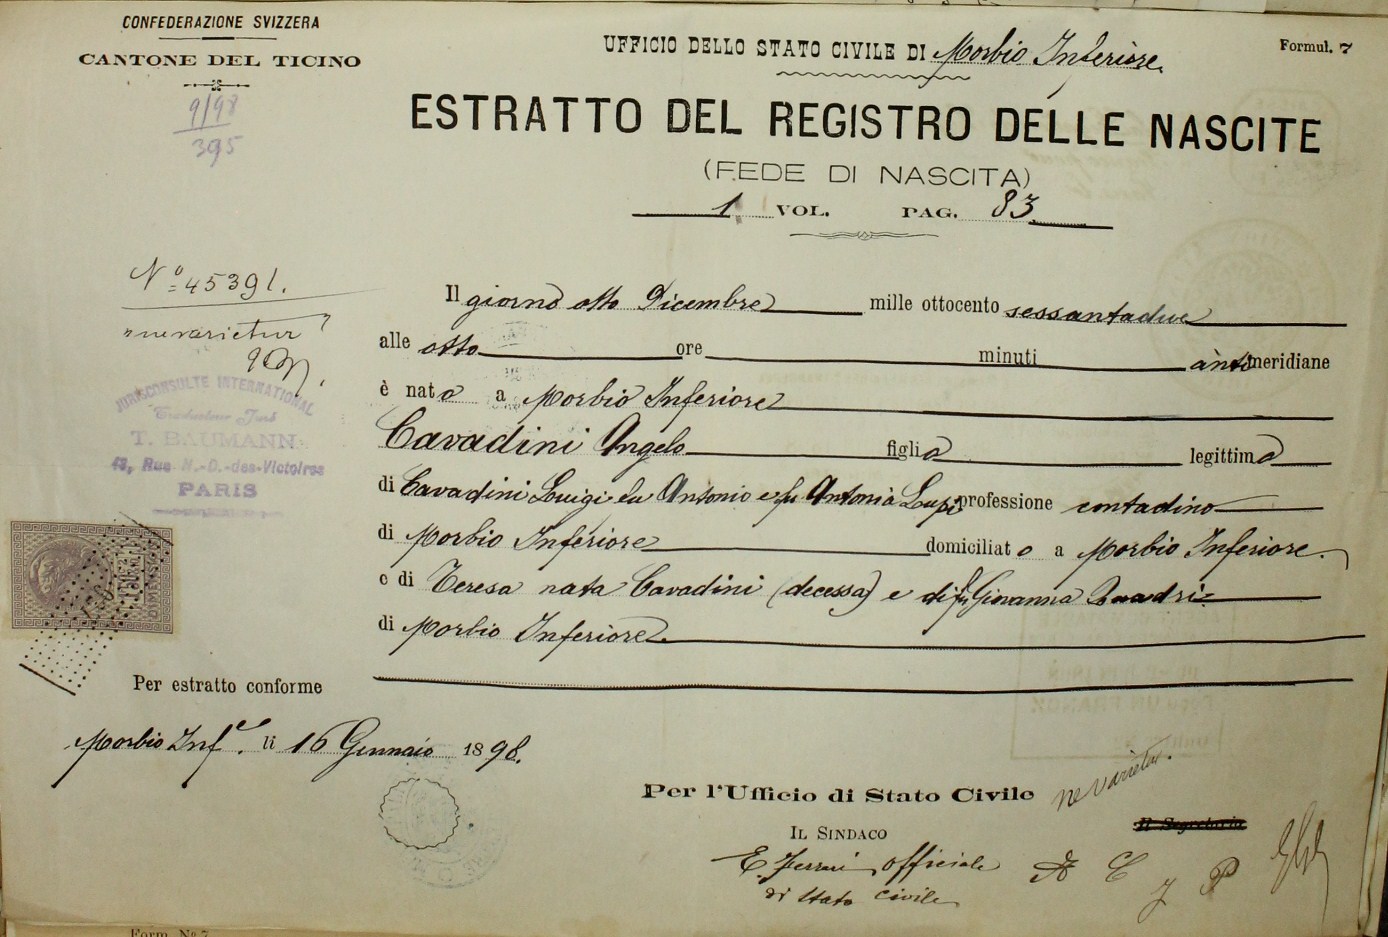 CONFEDERAZIONE SVIZZERA
CANTONE DEL TICINO
9/98
395
UFFICIO DELLO STATO CIVILE DI Morbio Inferiore
Formul. 7
ESTRATTO DEL REGISTRO DELLE NASCITE
(FEDE DI NASCITA)
1 VOL. PAG. 83
Nº 45391.
Il giorno otto Dicembre mille ottocento sessantadue
alle otto ore minuti antimeridiane
è nato a Morbio Inferiore
Cavadini Angelo figlio legittimo
di Cavadini Luigi fu Antonio e fu Antonia Lupi professione contadino
di Morbio Inferiore domiciliato a Morbio Inferiore.
e di Teresa nata Cavadini (decessa) e di fu Giovanna Quadri
di Morbio Inferiore
ne varietur
JURISCONSULTE INTERNATIONAL
Traducteur Juré
T. BAUMANN
13, Rue N.-D.-des-Victoires
PARIS
Per estratto conforme
Morbio Infre. li 16 Gennaio 1898.
Per l'Ufficio di Stato Civile
ne varietur.
IL SINDACO
Il Segretario
E. Ferrari officiale
di stato civile
Form. Nº 7